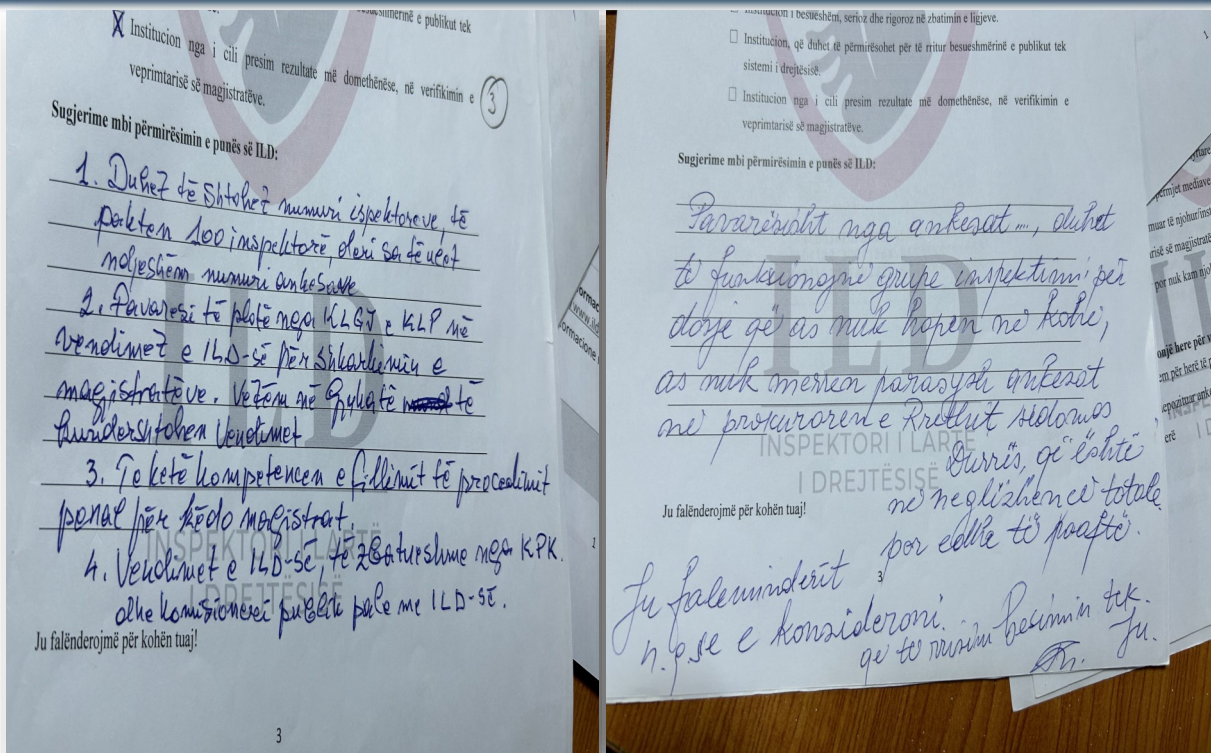 besueshmërinë e publikut tek
X Institucion nga i cili presim rezultate më domethënëse, në verifikimin e
veprimtarisë së magjistratëve.
3
Sugjerime mbi përmirësimin e punës së ILD:
1. Duhet të shtohet numuri ispektoreve, të
pakten 100 inspektorë, deri sa të ulet
ndjeshëm numuri ankesave
2. Pavaresi të plotë nga KLGJ e KLP në
vendimet e ILD-së për shkarkimin e
magjistratëve. Vetëm në Gjykatë të
kundershtohen vendimet
3. Te ketë kompetencen e fillimit të procedimit
penal për këdo magistrat.
4. Vendimet e ILD-së, të zbatueshme nga KPK.
dhe komisioneri publik pale me ILD-së.
ILD
INSPEKTORI I LARTË
I DREJTËSISË
Ju falënderojmë për kohën tuaj!
3
Institucion i besueshëm, serioz dhe rigoroz në zbatimin e ligjeve.
Institucion, që duhet të përmirësohet për të rritur besueshmërinë e publikut tek
sistemi i drejtësisë.
Institucion nga i cili presim rezultate më domethënëse, në verifikimin e
veprimtarisë së magjistratëve.
Sugjerime mbi përmirësimin e punës së ILD:
Pavarësisht nga ankesat ...., duhet
të funksionojnë grupe inspektimi për
dosje që as nuk hapen në kohë,
as nuk merren parasysh ankesat
në prokurorene Rrethit sidomos
Durrës, që është
në neglizhencë totale
por edhe të paaftë.
ILD
INSPEKTORI I LARTË
I DREJTËSISË
Ju falënderojmë për kohën tuaj!
3
Ju faleminderit
n.q.se e konsideroni.
që të rrisim besimin tek
Ju.